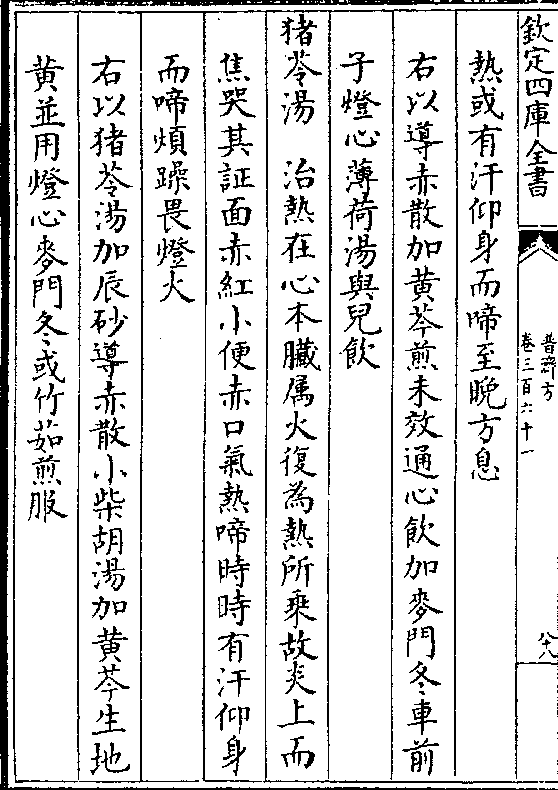 欽定四庫全書
普濟方
卷三百六十一
六八
熱或有汗仰身而啼至晩方息
右以導赤散加黄芩煎未效通心飲加麥門冬車前
子燈心薄荷湯與兒飲
猪苓湯　治熱在心本臟属火復為熱所乗故炎上而
焦哭其証面赤紅小便赤口氣熱啼時時有汗仰身
而啼煩躁畏燈火
右以猪苓湯加辰砂導赤散小柴胡湯加黄芩生地
黄並用燈心麥門冬或竹茹煎服